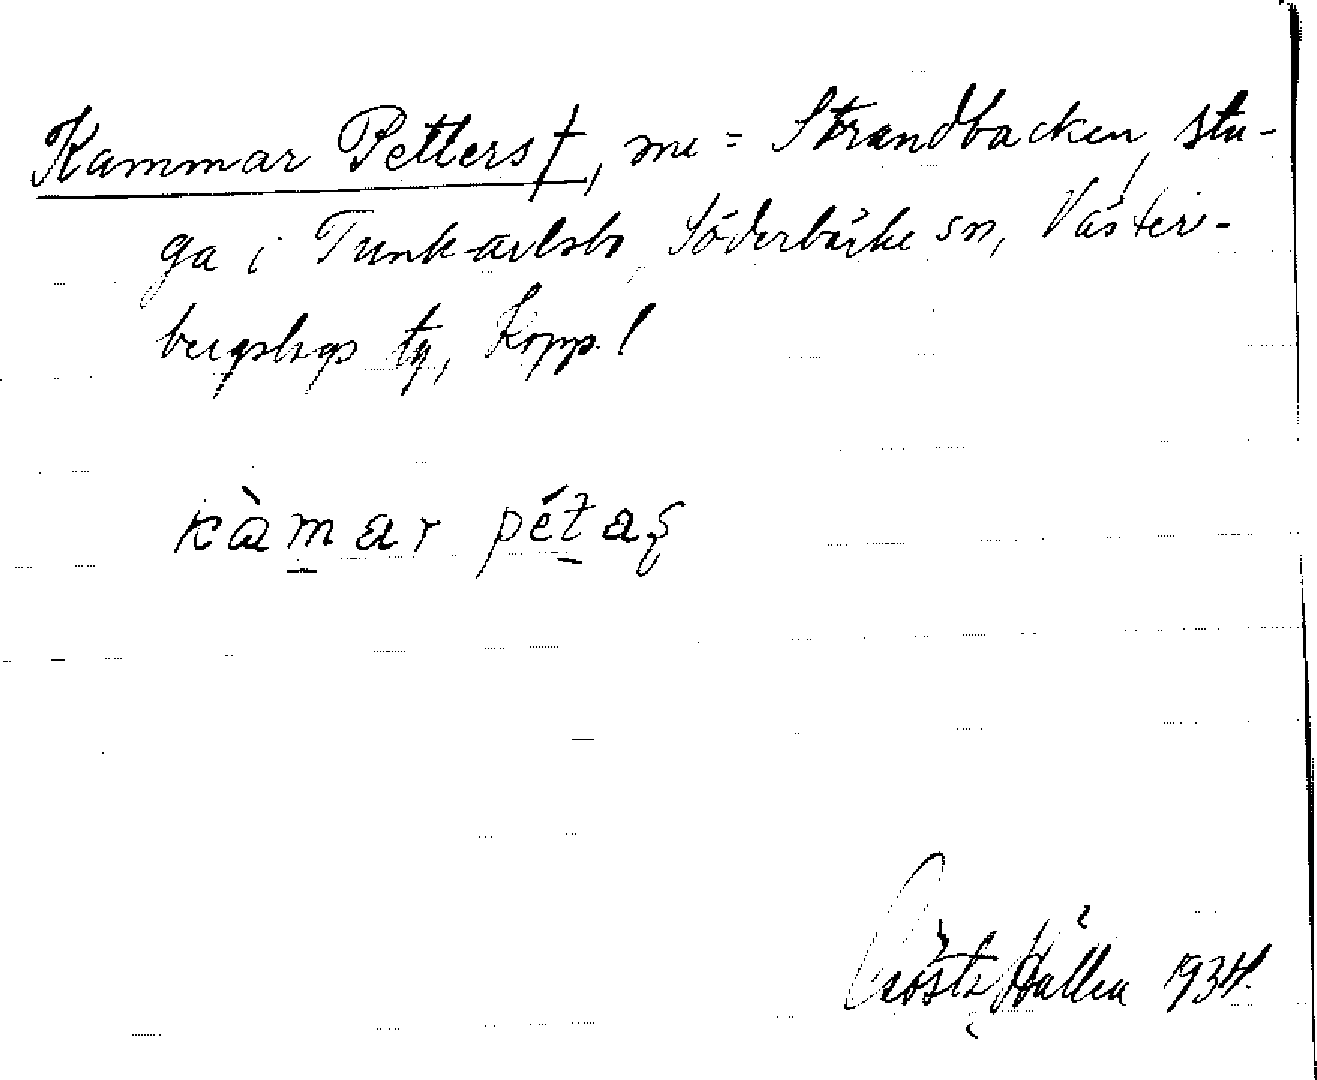 Kammar Petters †, nu = Strandbacken, stu-
ga i Tunkarlsbo, Söderbärke sn, Väster-
bergslags tg, Kopp. l
kàmar pétaʂ
Gösta Hallén 1934.